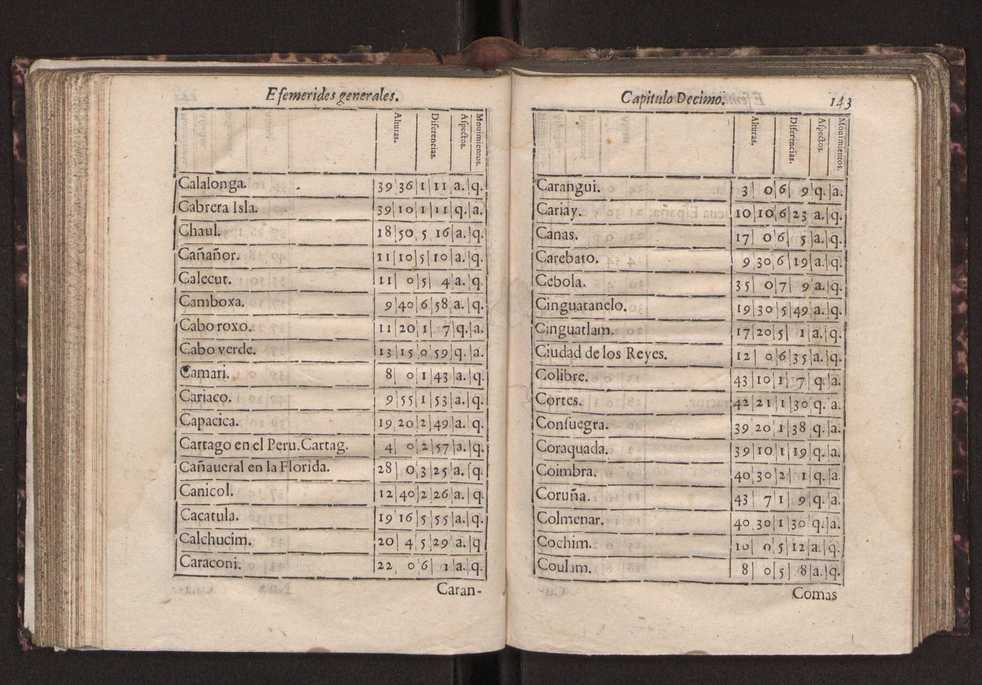 Efemerides generales.
Alturas. Diferencias. Aspectos. Mouimientos.
Calalonga. 39 36 1 11 a. q.
Cabrera Isla. 39 10 1 11 q. a.
Chaul. 18 50 5 16 a. q.
Cañañor. 11 10 5 10 a. q.
Calecut. 11 0 5 4 a. q.
Camboxa. 9 40 6 58 a. q.
Cabo roxo. 11 20 1 7 q. a.
Cabo verde. 13 15 0 59 q. a.
Camari. 8 0 1 43 a. q.
Cariaco. 9 55 1 53 a. q.
Capacica. 19 20 2 49 a. q.
Cartago en el Peru. Cartag. 4 0 2 57 a. q.
Cañaueral en la Florida. 28 0 3 25 a. q.
Canicol. 12 40 2 26 a. q.
Cacatula. 19 16 5 55 a. q.
Calchucim. 20 4 5 29 a. q
Caraconi. 22 0 6 1 a. q.
Caran-
Capitulo Decimo. 143
Alturas. Diferencias. Aspectos. Mouimientos.
Carangui. 3 0 6 9 q. a.
Cariay. 10 10 6 23 a. q.
Canas. 17 0 6 5 a. q.
Carebato. 9 30 6 19 a. q.
Cebola. 35 0 7 9 a. q.
Cinguatanelo. 19 30 5 49 a. q.
Cinguatlam. 17 20 5 1 a. q.
Ciudad de los Reyes. 12 0 6 35 a. q.
Colibre. 43 10 1 7 q. a.
Cortes. 42 21 1 30 q. a.
Consuegra. 39 20 1 38 q. a.
Coraquada. 39 10 1 19 q. a.
Coimbra. 40 30 2 1 q. a.
Coruña. 43 7 1 9 q. a.
Colmenar. 40 30 1 30 q. a.
Cochim. 10 0 5 12 a. q.
Coulam. 8 0 5 8 a. q.
Comas